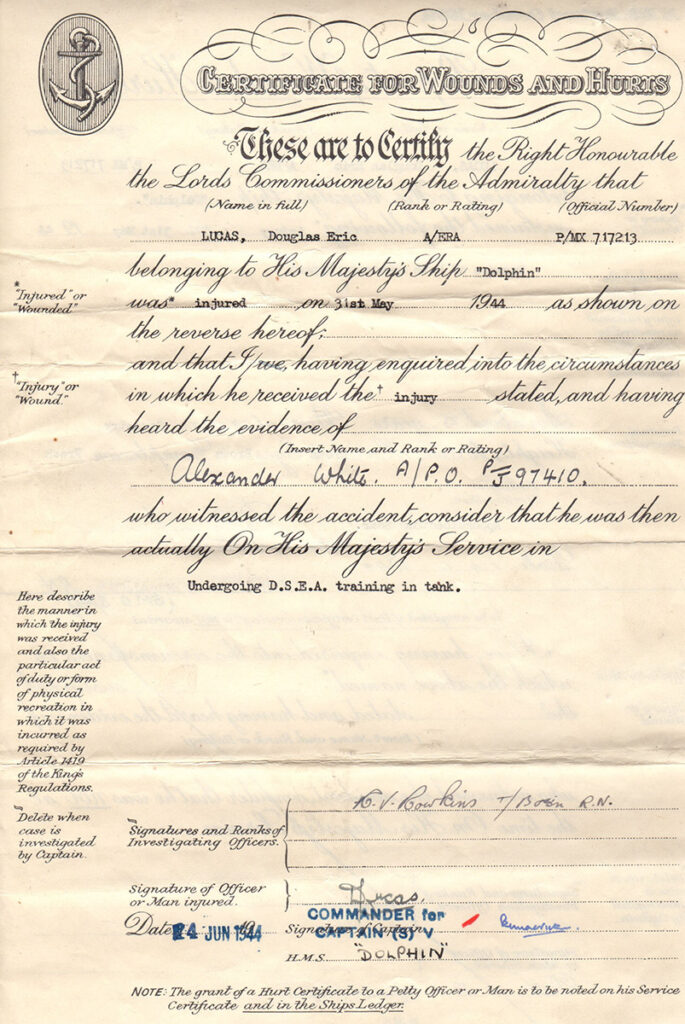 CERTIFICATE FOR WOUNDS AND HURTS
These are to Certify the Right Honourable
the Lords Commissioners of the Admiralty that
(Name in full) (Rank or Rating) (Official Number)
LUCAS, Douglas Eric A/ERA P/MX 717213
belonging to His Majesty's Ship "Dolphin"
* "Injured" or "Wounded."
was* injured on 31st May 1944 as shown on
the reverse hereof;
and that I/we, having enquired into the circumstances
† "Injury" or "Wound."
in which he received the† injury stated, and having
heard the evidence of
(Insert Name and Rank or Rating)
Alexander White. A/P.O. P/J 97410.
who witnessed the accident, consider that he was then
actually On His Majesty's Service in
Undergoing D.S.E.A. training in tank.
Here describe
the manner in
which the injury
was received
and also the
particular act
of duty or form
of physical
recreation in
which it was
incurred as
required by
Article 1419
of the King's
Regulations.
Delete when
case is
investigated
by Captain.
T/Bosn R.N.
Signatures and Ranks of
Investigating Officers.
Signature of Officer
or Man injured.
Lucas.
COMMANDER for
CAPTAIN (S) V
Date 24 JUN 1944
Signature of Captain
H.M.S. "DOLPHIN"
NOTE: The grant of a Hurt Certificate to a Petty Officer or Man is to be noted on his Service
Certificate and in the Ships Ledger.